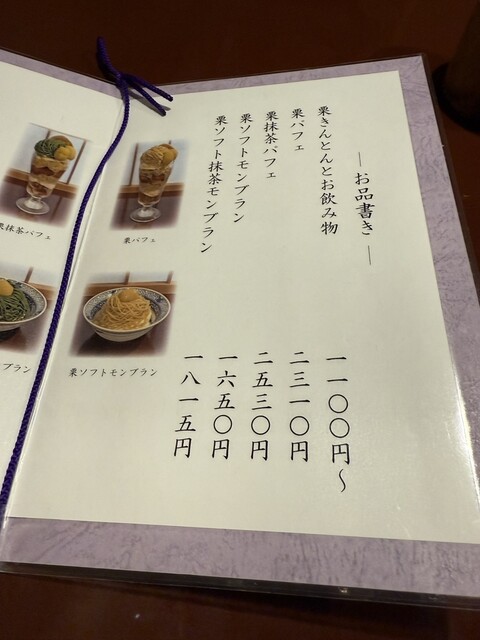 ― お品書き ―
栗きんとんとお飲み物 一一〇〇円～
栗パフェ 二三一〇円
栗抹茶パフェ 二五三〇円
栗ソフトモンブラン 一六五〇円
栗ソフト抹茶モンブラン 一八一五円
栗パフェ
栗ソフトモンブラン
栗抹茶パフェ
ブラン